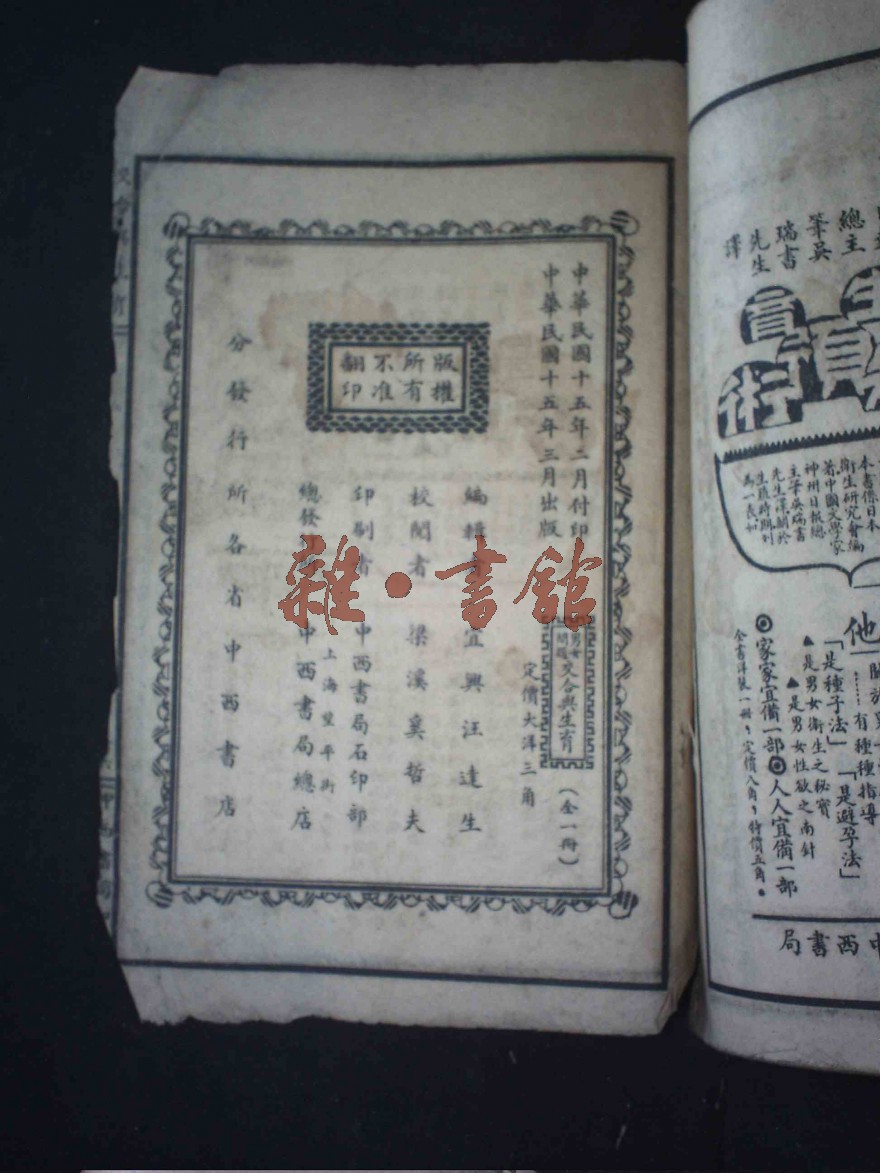 中華民國十五年二月付印
中華民國十五年三月出版
男女問題
交合與生育
(全一冊)
定價大洋三角
版權所有
不准翻印
編輯者 宜興汪達生
校閱者 梁溪奚哲夫
印刷者 中西書局石印部
上海望平街
總發行所 中西書局總店
分發行所各省中西書店
雜·書館
總主
筆吳
瑞書
先生
譯
術
本書係日本
衛生研究會編
著中國文學家
神州日報總
主筆吳瑞書
先生譯關於
生殖時期列
為一表如
他
「是種子法」「是避孕法」
……有種種指導
▲是男女衛生之秘寶
▲是男女性欲之南針
◎家家宜備一部◎人人宜備一部
全書洋裝一冊，定價八角，特價五角。
中西書局